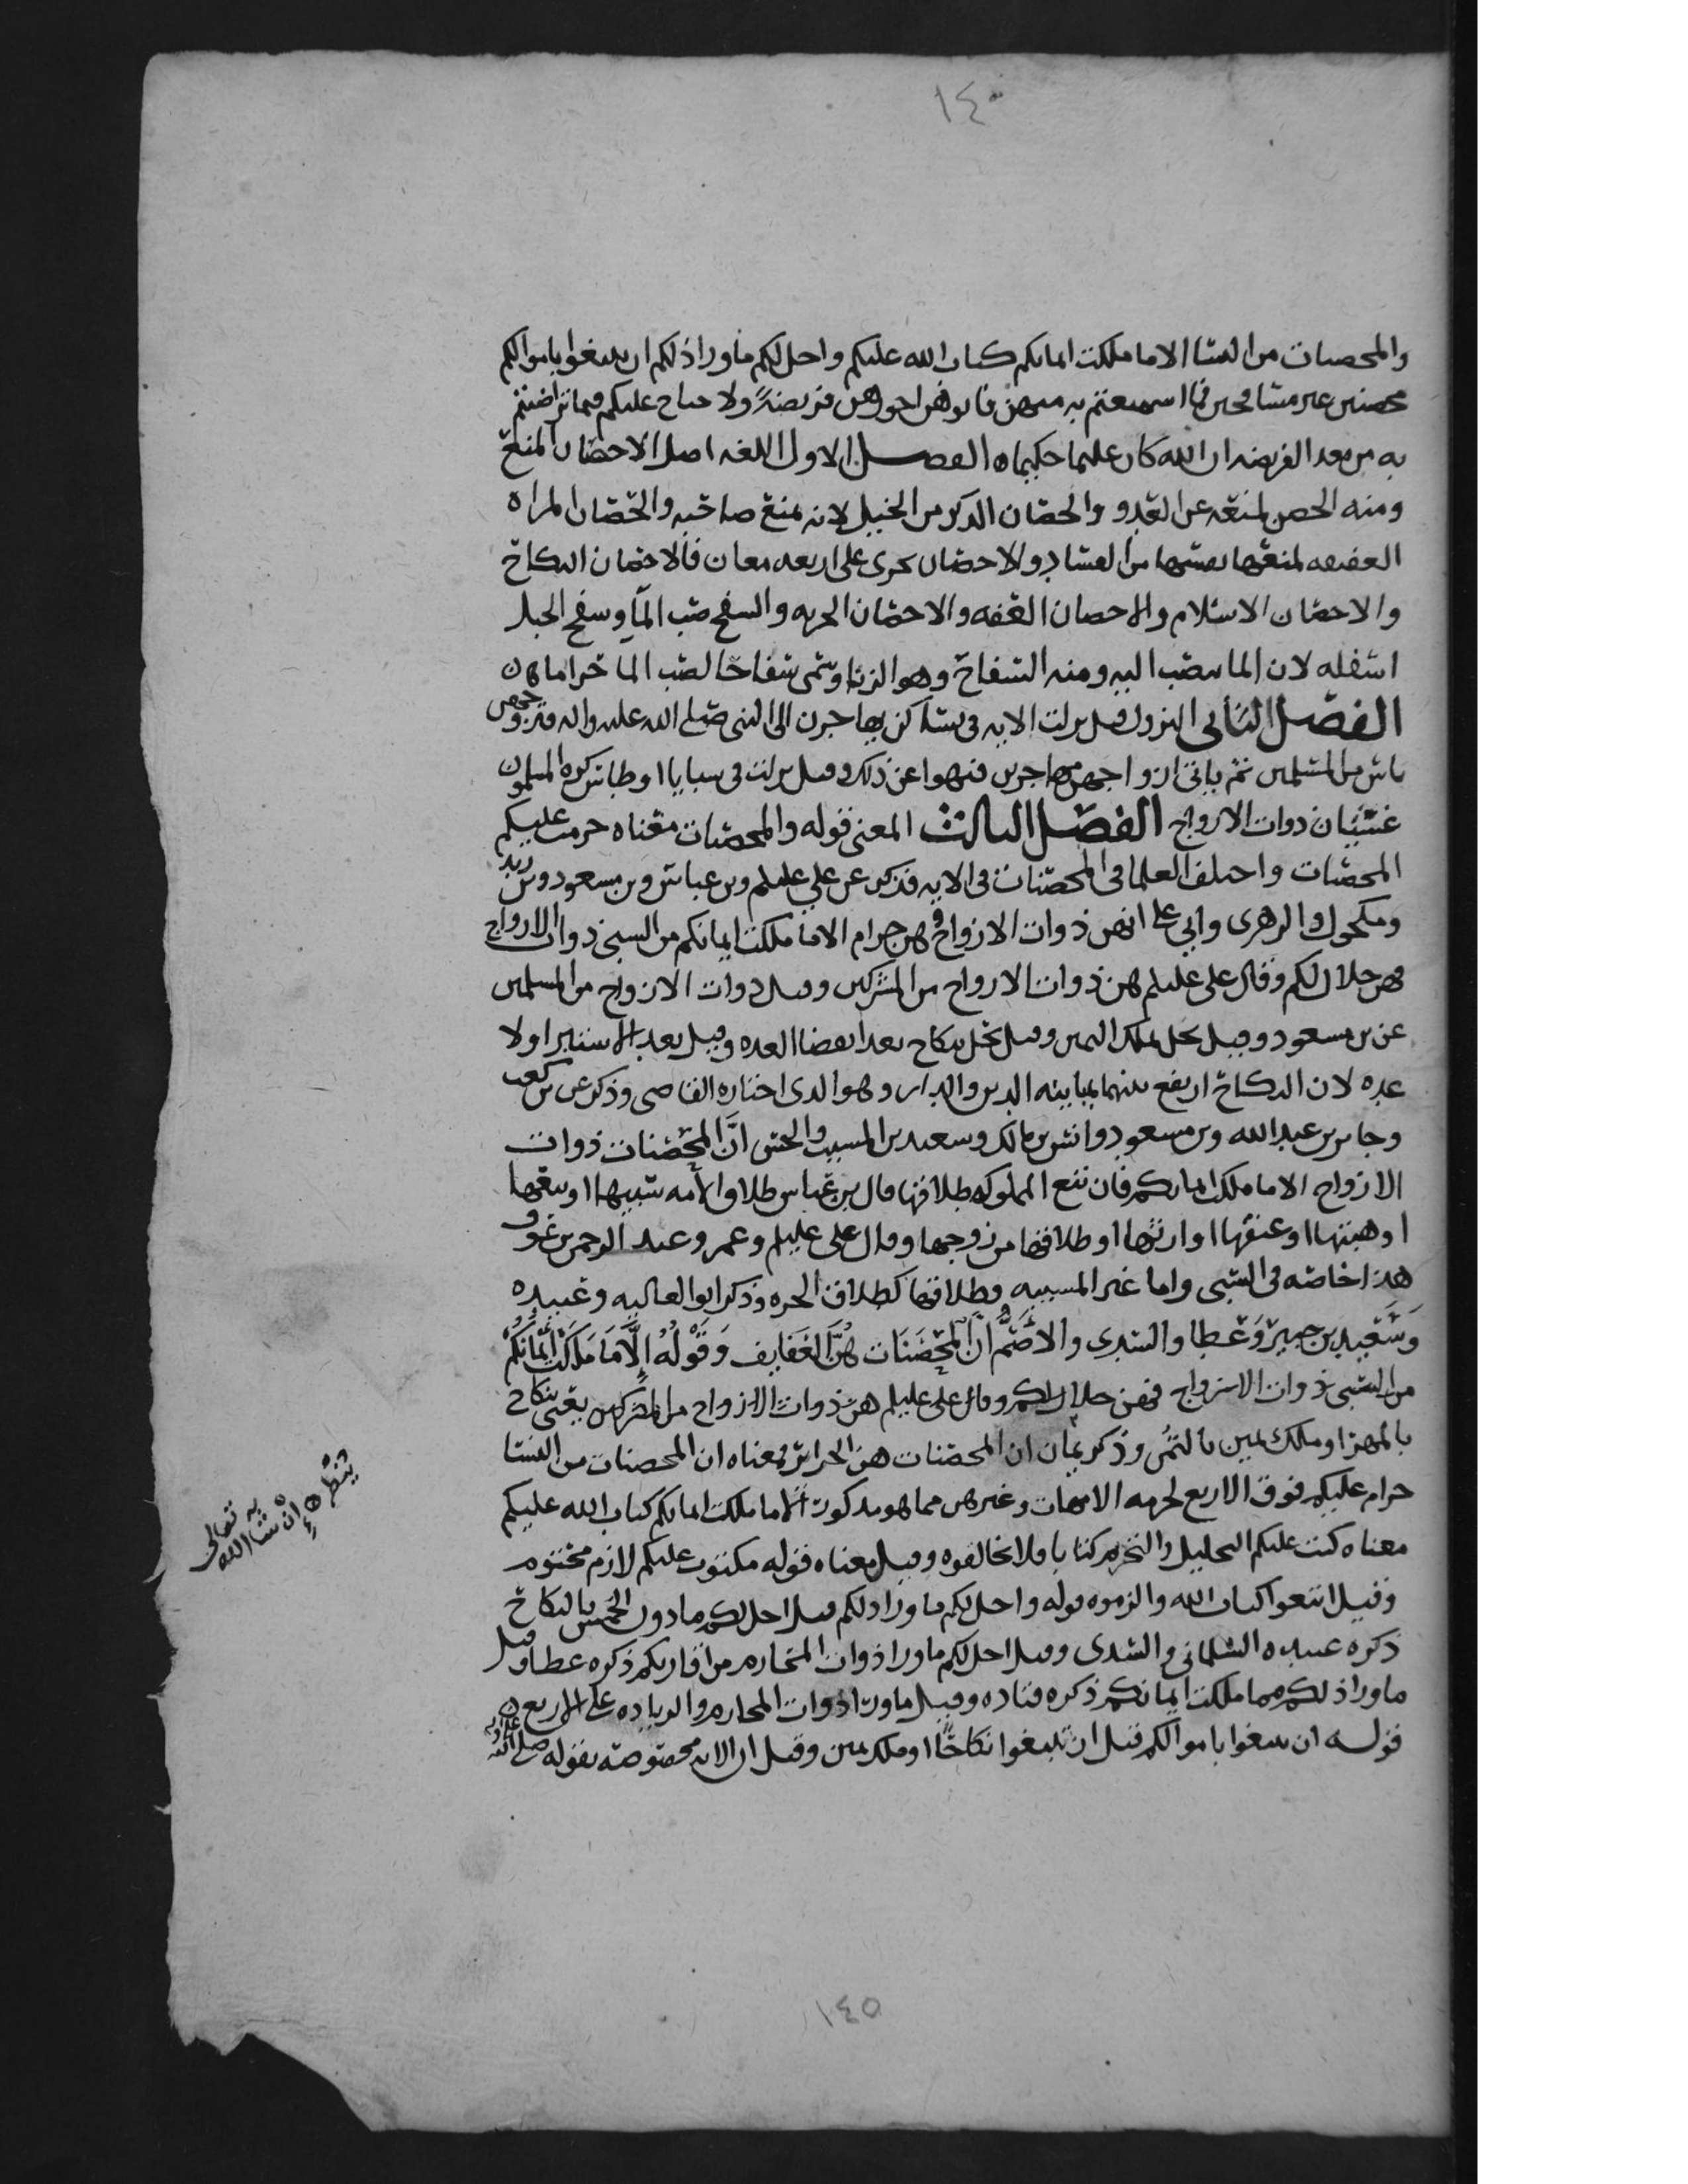 ١٤٠
والمحصنات من النسا الا ما ملكت ايمانكم كتاب الله عليكم واحل لكم ما ورا ذلكم ان تبتغوا باموالكم
محصنين غير مسافحين فما استمتعتم به منهن فاتوهن اجورهن فريضة ولا جناح عليكم فيما تراضيتم
به من بعد الفريضه ان الله كان عليما حكيما ه الفصل الاول اللغه اصل الاحصان المنع
ومنه الحصن لمنعه عن العدو والحصان الذكر من الخيل لانه يمنع صاحبه والحصان المراه
العفيفه لمنعها نفسها من الفساد والاحصان يجرى على اربعه معان فالاحصان النكاح
والاحصان الاسلام والاحصان العفه والاحصان الحريه والسفح صب الما وسفح الجبل
اسفله لان الما ينصب اليه ومنه السفاح وهو الزنا وسمى سفاحا لصب الما حراما ن
الفصل الثاني النزول قيل نزلت الايه فى نسا كن يهاجرن الى النبى صلى الله عليه واله فتزوجهن
ناس من المسلمين ثم ياتى ازواجهن مهاجرين فنهوا عن ذلك وقيل نزلت فى سبايا اوطاس كره المسلمون
غشيان ذوات الازواج الفصل الثالث المعنى قوله والمحصنات معناه حرمت عليكم
المحصنات واختلف العلما فى المحصنات فى الايه فذكر عن على عليلم وبن عباس وبن مسعود وبن زيد
ومكحول والزهرى وابى على انهن ذوات الازواج فهن حرام الا ما ملكت ايمانكم من السبى ذوات الازواج
فهن حلال لكم وقال على عليلم هن ذوات الازواج من المشركين وقيل ذوات الازواج من المسلمين
عن بن مسعود وقيل يحل بملك اليمين وقيل يحل بنكاح بعد انقضا العده وقيل بعد الاستبرا ولا
عده لان النكاح ارتفع بينهما بمباينه الدين والدار وهو الذى اختاره القاضى وذكر عن بن كعب
وجابر بن عبد الله وبن مسعود وانس بن مالك وسعيد بن المسيب والحسن ان المحصنات ذوات
الازواج الا ما ملكت ايمانكم فان بيع المملوكه طلاقها قال بن عباس طلاق الامه سبيها او بيعها
او هبتها او عتقها او ارثها او طلاقها من زوجها وقال على عليلم وعمر وعبد الرحمن بن عوف
هذا خاصه فى السبى واما غير المسبيه فطلاقها كطلاق الحره وذكر ابو العاليه وعبيده
وسعيد بن جبير وعطا والسدى والاصم ان المحصنات هن العفايف وقوله الا ما ملكت ايمانكم
من السبى ذوات الازواج فهن حلال لكم وقال على عليلم هن ذوات الازواج من المشركين يعنى بنكاح
بالمهر او ملك يمين بالثمن وذكر يمان ان المحصنات هن الحراير فمعناه ان المحصنات من النسا
حرام عليكم فوق الاربع لحرمه الامهات وغيرهن مما هو مذكور الا ما ملكت ايمانكم كتاب الله عليكم
معناه كتب عليكم التحليل والتحريم كتابا فلا تخالفوه وقيل معناه فقوله مكتوب عليكم لازم محتوم
وقيل اتبعوا كتاب الله والزموه قوله واحل لكم ما ورا ذلكم قيل احل لكم ما دون الخمس بالنكاح
ذكره عبيده السلمانى والسدى وقيل احل لكم ما ورا ذوات المحارم من اقاربكم ذكره عطا وقيل
ما ورا ذلكم مما ملكت ايمانكم ذكره قتاده وقيل ما ورا ذوات المحارم والزياده على الاربع ن
قوله ان تبتغوا باموالكم قيل ان تبتغوا نكاحا او ملك يمين وقيل ان الايه مخصوصه بقوله صلى الله
ينظر
ان شا الله
تعالى
١٤٥